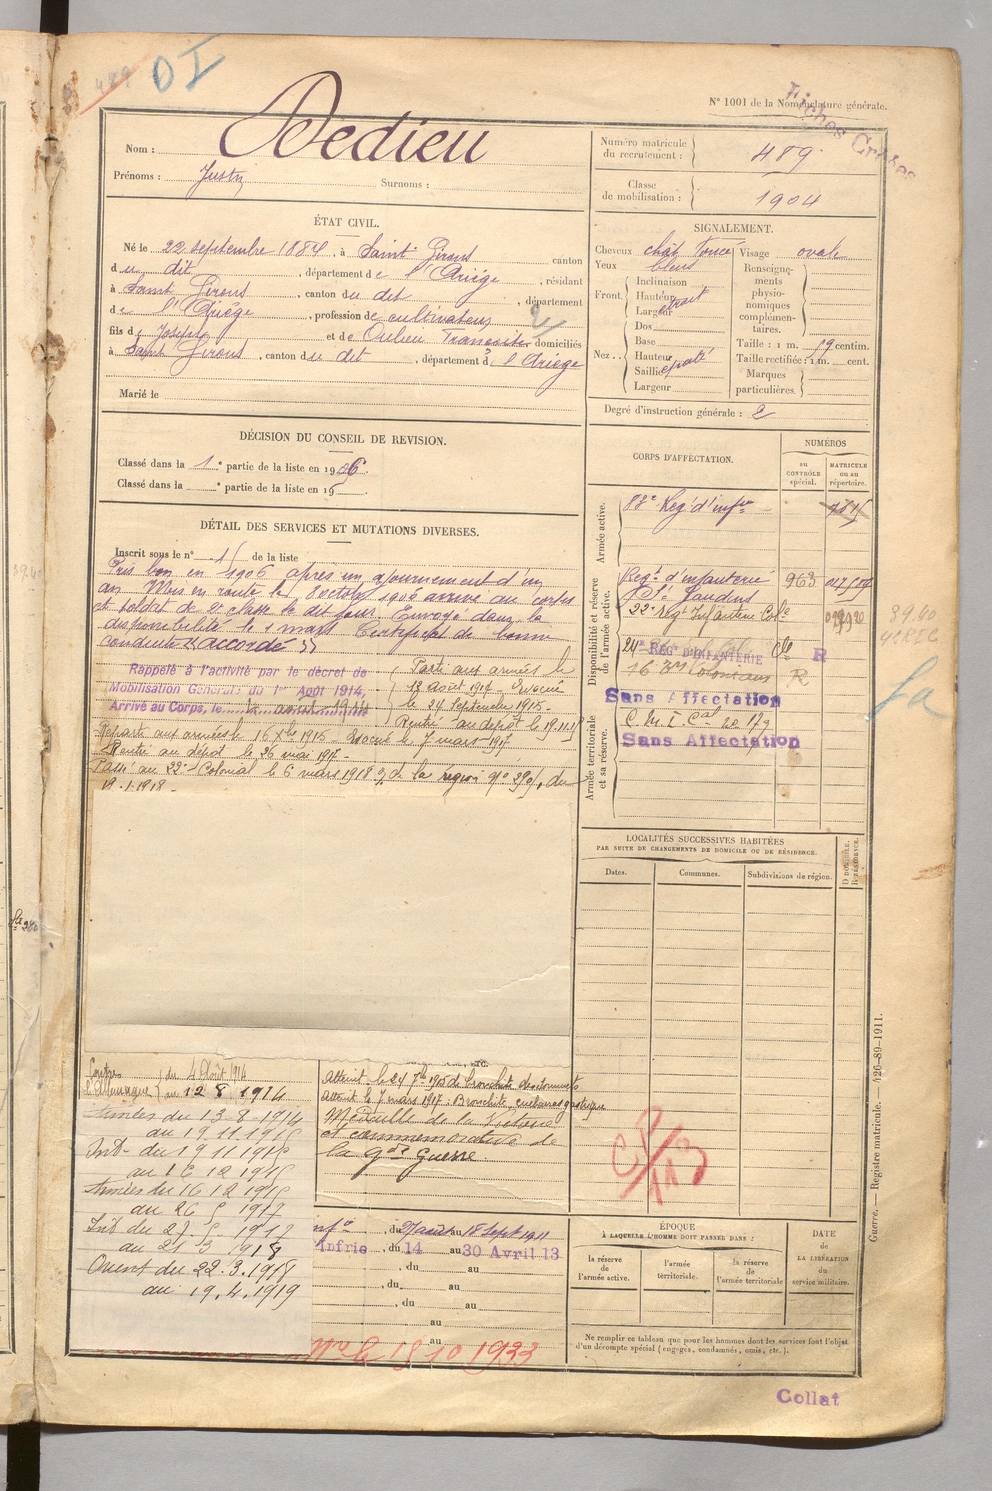 489
OI
N° 1001 de la Nomenclature générale.
Fiches Croisées
Nom : Dedieu
Prénoms : Justin Surnoms :
Numéro matricule du recrutement : 489
Classe de mobilisation : 1904
ÉTAT CIVIL.
Né le 22 septembre 1884, à Saint-Girons canton
du dit, département de l'Ariège, résidant
à Saint Girons, canton du dit, département
de l'Ariège, profession de cultivateur
fils de Joseph et de domiciliés
à Saint Girons, canton du dit, département d l'Ariège
Marié le
SIGNALEMENT.
Cheveux chât foncé
Yeux bleus
Front.
Inclinaison
Hauteur
Largeur
Dos
Nez..
Base
Hauteur
Saillie
Largeur
Visage ovale
Renseignements physionomiques complémentaires.
Taille : 1 m. centim.
Taille rectifiée : 1 m. cent.
Marques particulières.
Degré d'instruction générale : 2
DÉCISION DU CONSEIL DE REVISION.
Classé dans la 1e partie de la liste en 1906.
Classé dans la e partie de la liste en 19
DÉTAIL DES SERVICES ET MUTATIONS DIVERSES.
Inscrit sous le n° de la liste
Pris bon en 1906 après un ajournement d'un
an Mis en route le 8 octobre 1906 arrivé au corps
et soldat de 2e classe le dit jour. Envoyé dans la
disponibilité le 1 mars Certificat de bonne
conduite accordé
Rappelé à l'activité par le décret de
Mobilisation Générale du 1er Août 1914,
Arrivé au Corps, le 12 août 1914
Parti aux armées le
13 août Evacué
le 24 Septembre 1915.
Rentré au dépôt le 19.11.15
Reparti aux armées le 16 Xbre 1915 Evacué le 7 mars 1917
Rentré au dépôt le 26 mai 1917.
Passé au 22e Colonial le 6 mars 1918 de la région du
19.1.1918.
CORPS D'AFFECTATION.
NUMÉROS
AU CONTRÔLE spécial.
MATRICULE ou au répertoire.
Armée active.
88e Rég d'infie
Disponibilité et réserve de l'armée active.
Régt d'infanterie 963
St Gaudens
22e Régt Infanterie Cole
24e RÉGt D'INFANTERIE Cle R
R
Sans Affectation
Armée territoriale et sa réserve.
Sans Affectation
LOCALITÉS SUCCESSIVES HABITÉES
PAR SUITE DE CHANGEMENTS DE DOMICILE OU DE RÉSIDENCE.
Dates. Communes. Subdivisions de région.
D. DOMICILE. R. RÉSIDENCE.
Contre l'Allemagne du 4 Août 1914
au 12 8 1914
Armées du 13-8-1914
au 19.11.1915
Int. du 19 11 1915
au 16 12 1915
Armées du 16 12 1915
au 26 5 1917
Int du 27 5 1917
au 21 3 1918
Orient du 22.3.1918
au 19.4.1919
ETC.
Atteint le 24 7bre 1915 de bronchite
Atteint le 7 mars 1917 : Bronchite, embarras gastrique
Médaille de la Victoire
et commémorative de
la gde Guerre.
du 27 août au 18 Sept 1911
Infrie, du 14 au 30 Avril 13
, du au
, du au
, du au
au
au
18 10 1933
CP/113
ÉPOQUE
À LAQUELLE L'HOMME DOIT PASSER DANS :
la réserve de l'armée active.
l'armée territoriale.
la réserve de l'armée territoriale
DATE de LA LIBÉRATION du service militaire.
Ne remplir ce tableau que pour les hommes dont les services font l'objet
d'un décompte spécial (engagés, condamnés, omis, etc.).
Guerre. — Registre matricule. — 426-89-1911.
Collat